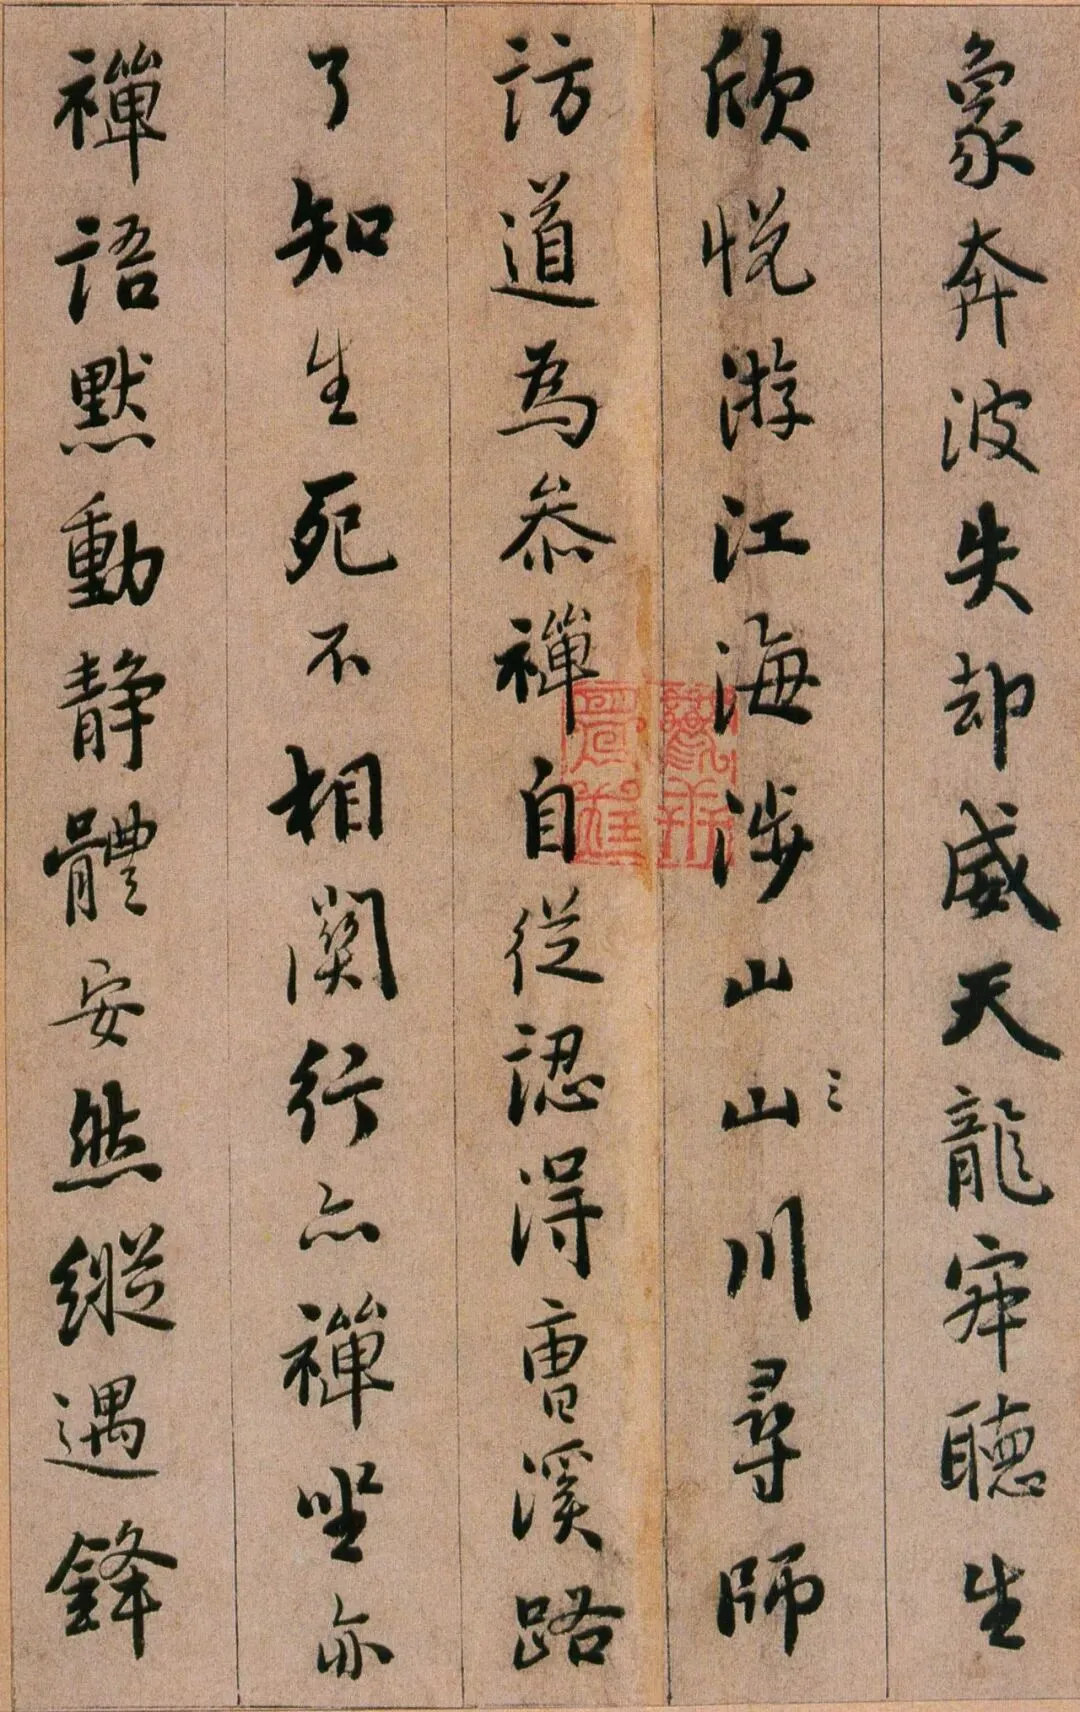 象奔波失却威天龍寂聽生
欣悅游江海涉山山川尋師
訪道為叅禪自從認得曹溪路
了知生死不相關行亦禪坐亦
禪語默動靜體安然縱遇鋒